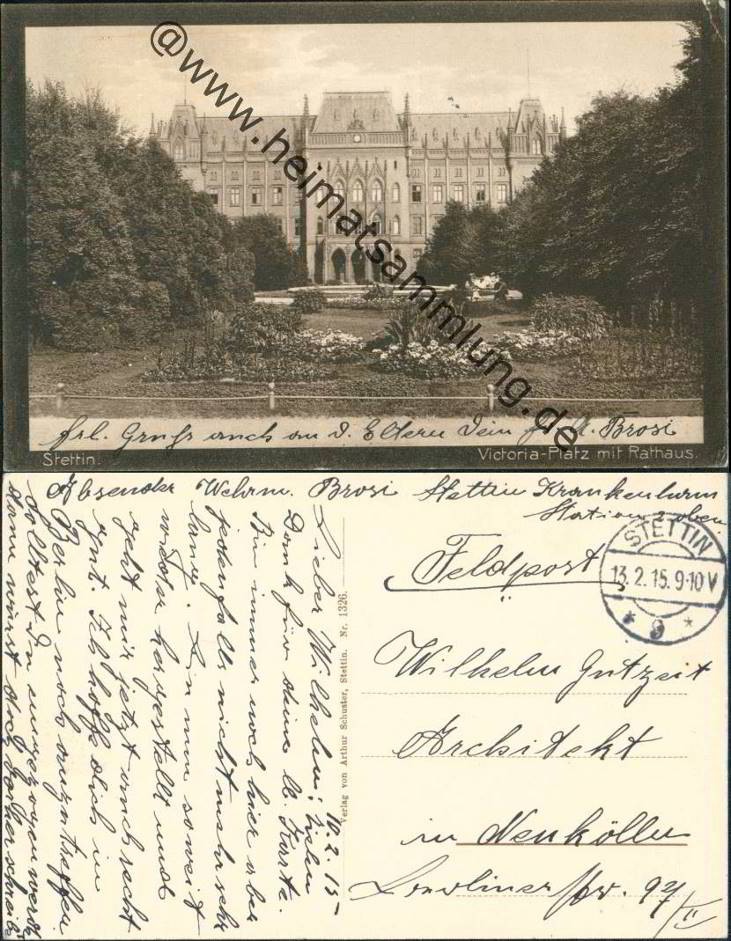 @www.heimatsammlung.de
frl. Gruß auch an d. Eltern Dein Brosi
Stettin.
Victoria-Platz mit Rathaus.
Absender Wehrm. Brosi Stettin Krankenhaus
Station 2 oben
Feldpost
STETTIN
13.2.15.9-10V
* 9 *
Wilhelm Gutzeit
Architekt
in Neukölln
str. 97/II
Verlag von Arthur Schuster, Stettin. Nr. 1326.
10.2.15
Lieber Wilhelm! Vielen
Dank für deine lb. Karte.
Bin immer noch hier aber
jedenfalls nicht mehr sehr
lange. Bin nun soweit
wieder hergestellt und
geht mir jetzt auch recht
gut. Ich hoffe dich in
Berlin noch anzutreffen.
Solltest Du eingezogen werden
dann wirst doch vorher schreiben